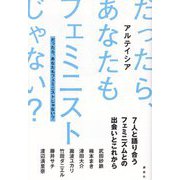 だったら、
あなたも
フェミニスト
じゃない?
だったら、あなたもフェミニストじゃない?
アルテイシア
7人と語り合う
フェミニズムとの
出会いとこれから
武田砂鉄
楠本まき
津田大介
瀧波ユカリ
竹田ダニエル
藤井サチ
講談社